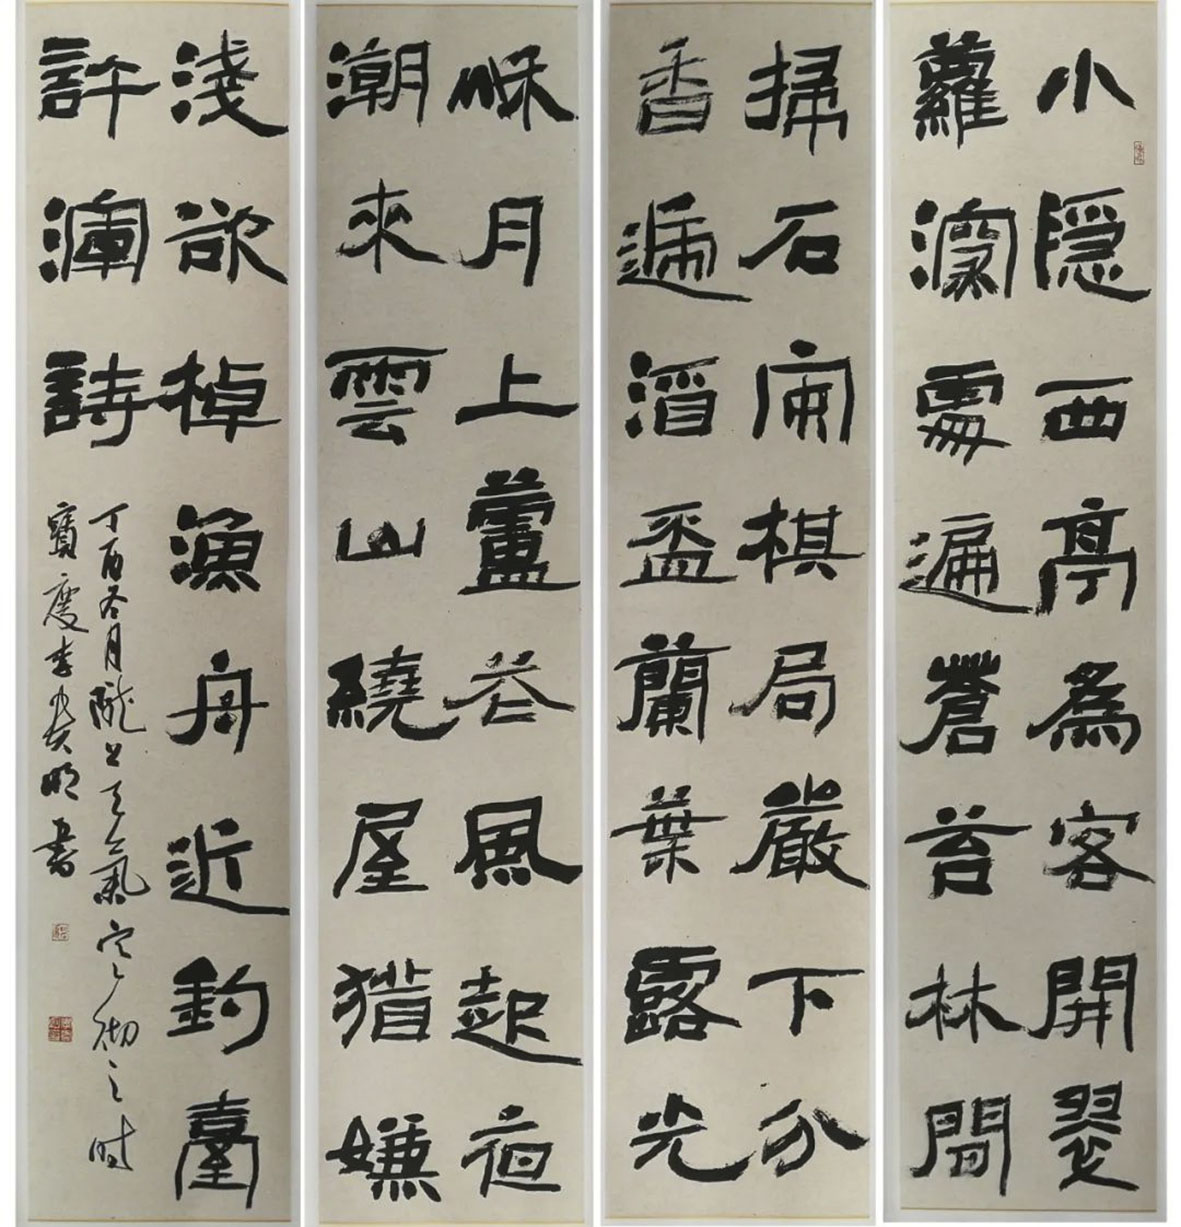 小隱西亭爲客開翠
蘿深處遍蒼苔林間
掃石安棋局巖下分
香遞酒盃蘭葉露光
秋月上蘆花風起夜
潮來雲山繞屋猶嫌
淺欲棹漁舟近釣臺
許渾詩
丁酉冬月隴上天氣寒
寶慶李 明書